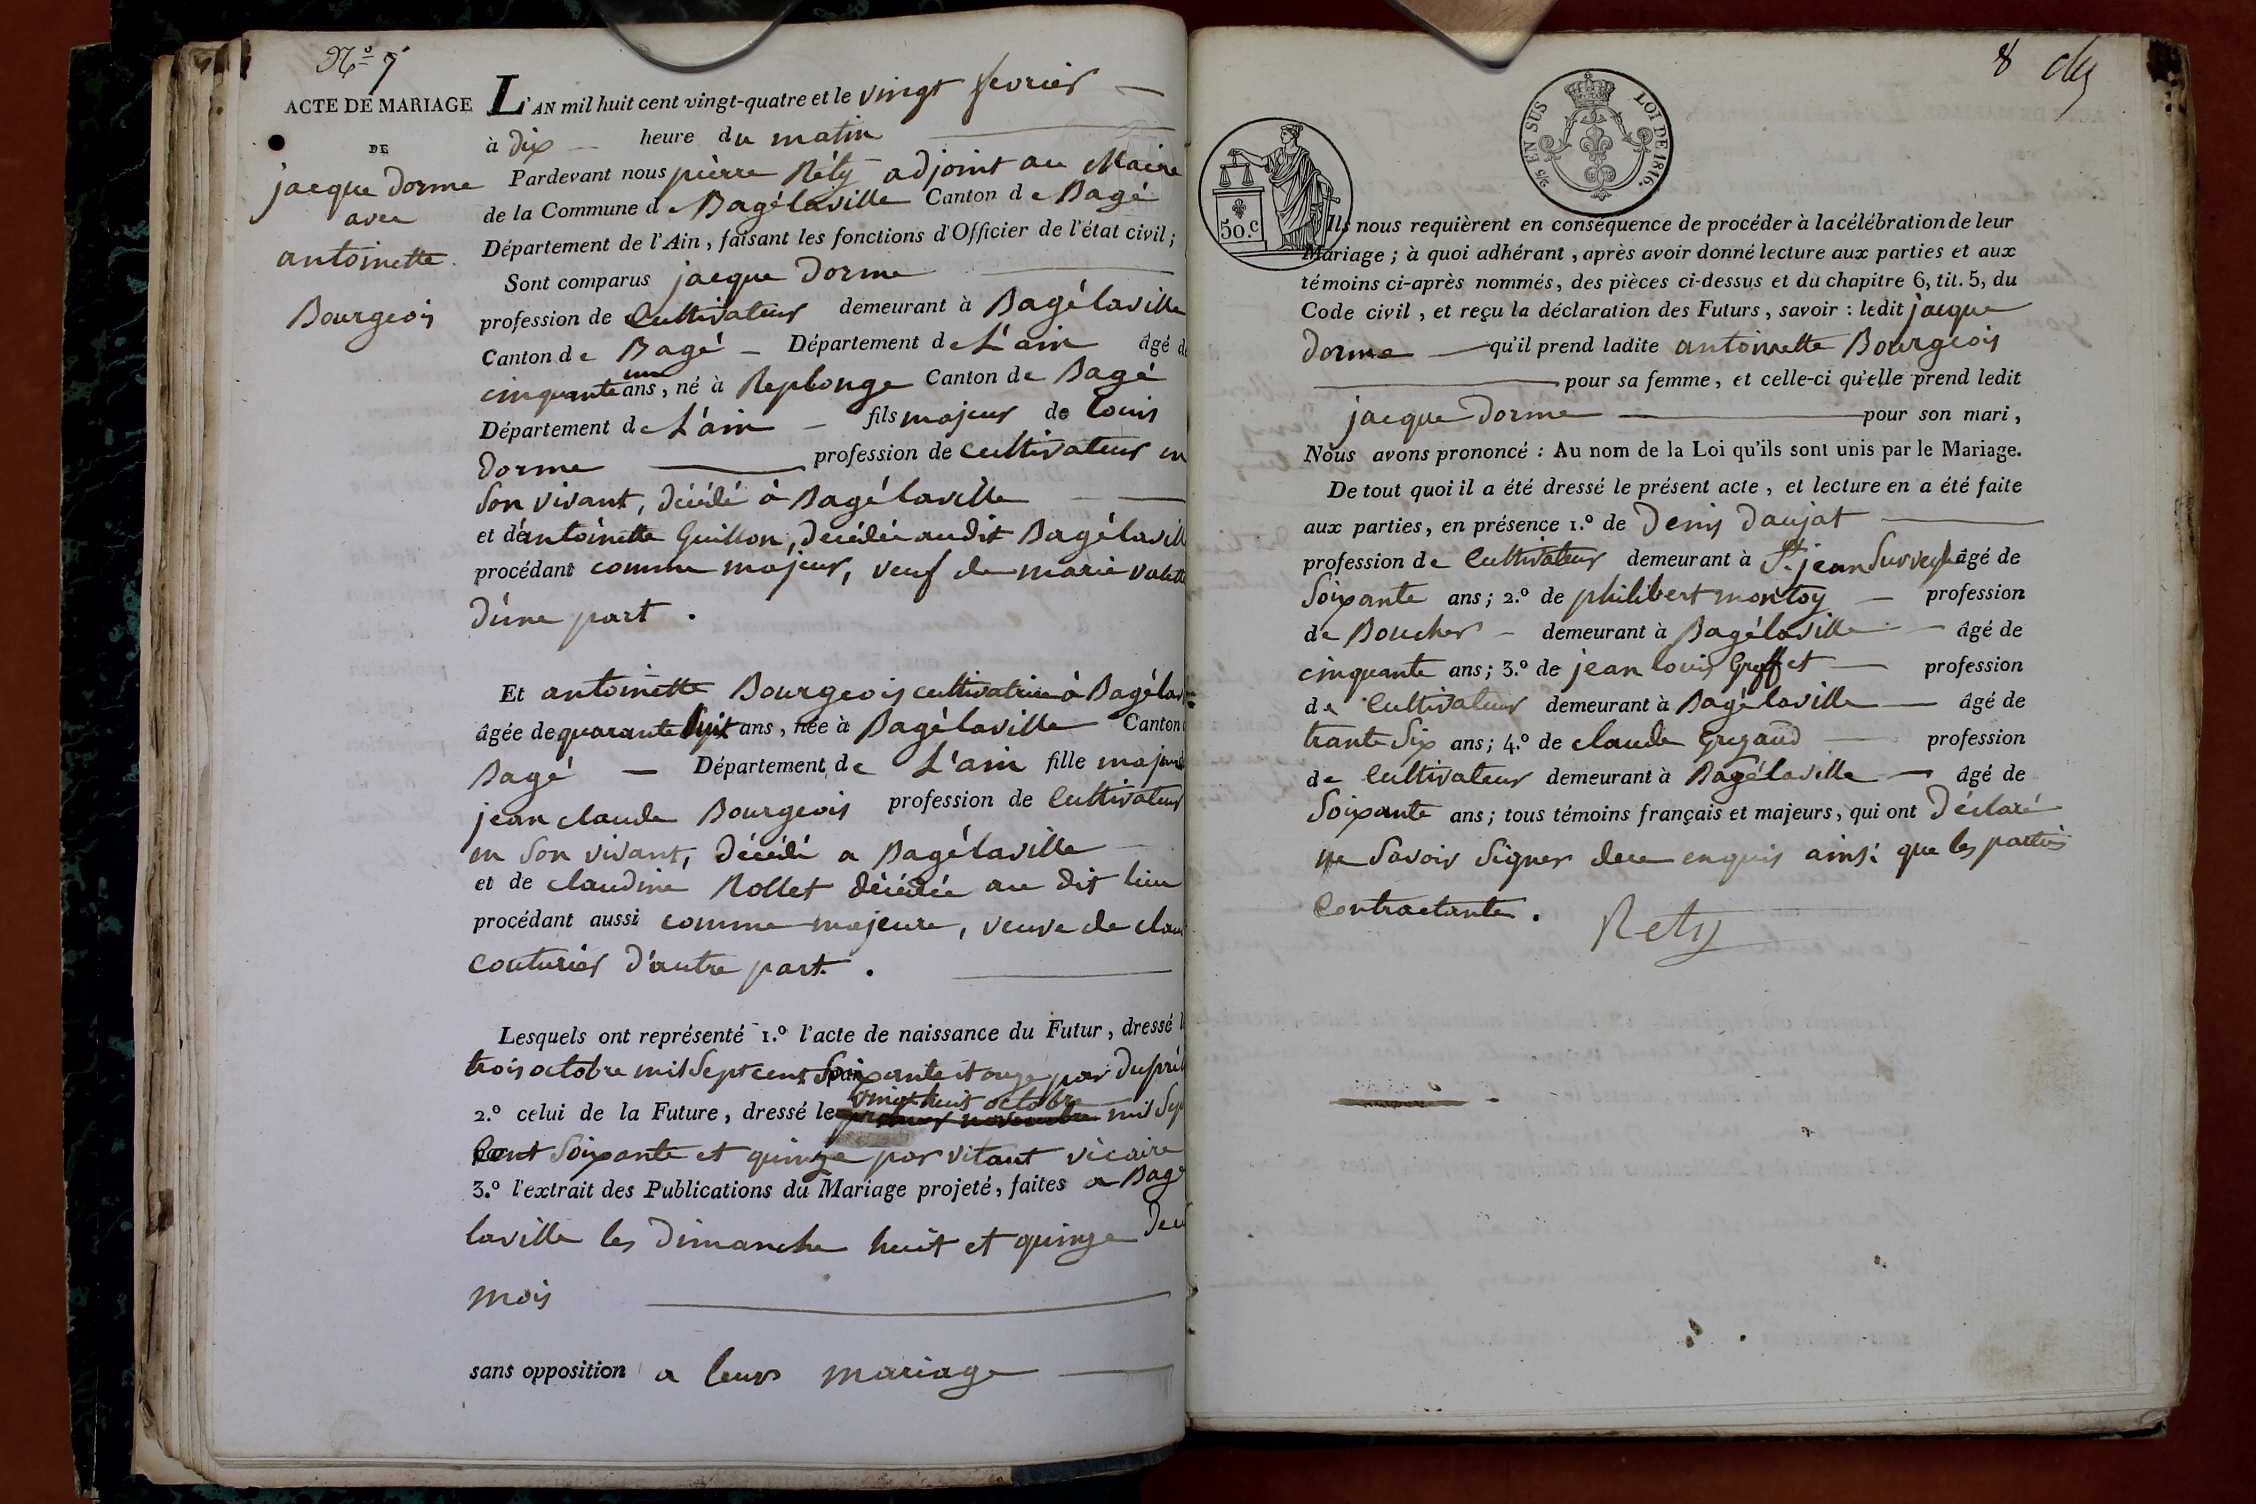 N.º 7
ACTE DE MARIAGE
DE
jacque dorme
avec
antoinette
Bourgeois
L'AN mil huit cent vingt-quatre et le vingt fevrier
à dix heure du matin
Pardevant nous pierre Réty adjoint au Maire
de la Commune de Bagélaville Canton de Bagé
Département de l'Ain, faisant les fonctions d'Officier de l'état civil;
Sont comparus jacque dorme
profession de Cultivateur demeurant à Bagélaville
Canton de Bagé Département de L'ain âgé de
cinquante un ans, né à Replonge Canton de Bagé
Département de L'ain fils majeur de Louis
dorme profession de cultivateur en
Son vivant, décédé à Bagélaville
et de antoinette Guillon, décédée audit Bagélavill
procédant comme majeur, veuf de marie valette
d'une part.
Et antoinette Bourgeois cultivatrice à Bagélav
âgée de quarante huit ans, née à Bagélaville Canton
Bagé Département de L'ain fille majeure
jean claude Bourgeois profession de Cultivateur
en Son vivant, décédé a Bagélaville
et de claudine Rollet décédée au dit lieu
procédant aussi comme majeure, veuve de clau
couturier d'autre part.
Lesquels ont représenté 1.º l'acte de naissance du Futur, dressé l
trois octobre mil Sept cent Soixante et onze par dupré
vingt huit octobre
2.º celui de la Future, dressé le premier novembre mil Sep
Cent Soixante et quinze par vitaut vicaire
3.º l'extrait des Publications du Mariage projeté, faites a Bagé
laville les dimanche huit et quinze
mois
sans opposition a leur mariage
8
5/2 EN SUS LOI DE 1816.
50.c
Ils nous requièrent en conséquence de procéder à la célébration de leur
Mariage; à quoi adhérant, après avoir donné lecture aux parties et aux
témoins ci-après nommés, des pièces ci-dessus et du chapitre 6, tit. 5, du
Code civil, et reçu la déclaration des Futurs, savoir: ledit jacque
dorme qu'il prend ladite antoinette Bourgeois
pour sa femme, et celle-ci qu'elle prend ledit
jacque dorme pour son mari,
Nous avons prononcé: Au nom de la Loi qu'ils sont unis par le Mariage.
De tout quoi il a été dressé le présent acte, et lecture en a été faite
aux parties, en présence 1.º de Denis Daujat
profession de Cultivateur demeurant à St. jean Sur veyle âgé de
Soixante ans; 2.º de philibert montoy profession
de Boucher demeurant à Bagélaville âgé de
cinquante ans; 3.º de jean Louis Greffet profession
de Cultivateur demeurant à Bagélaville âgé de
trante Six ans; 4.º de claude Grezaud profession
de Cultivateur demeurant à Bagélaville âgé de
Soixante ans; tous témoins français et majeurs, qui ont déclaré
ne Savoir Signer de ce enquis ainsi que les parties
Contractante.
Rety